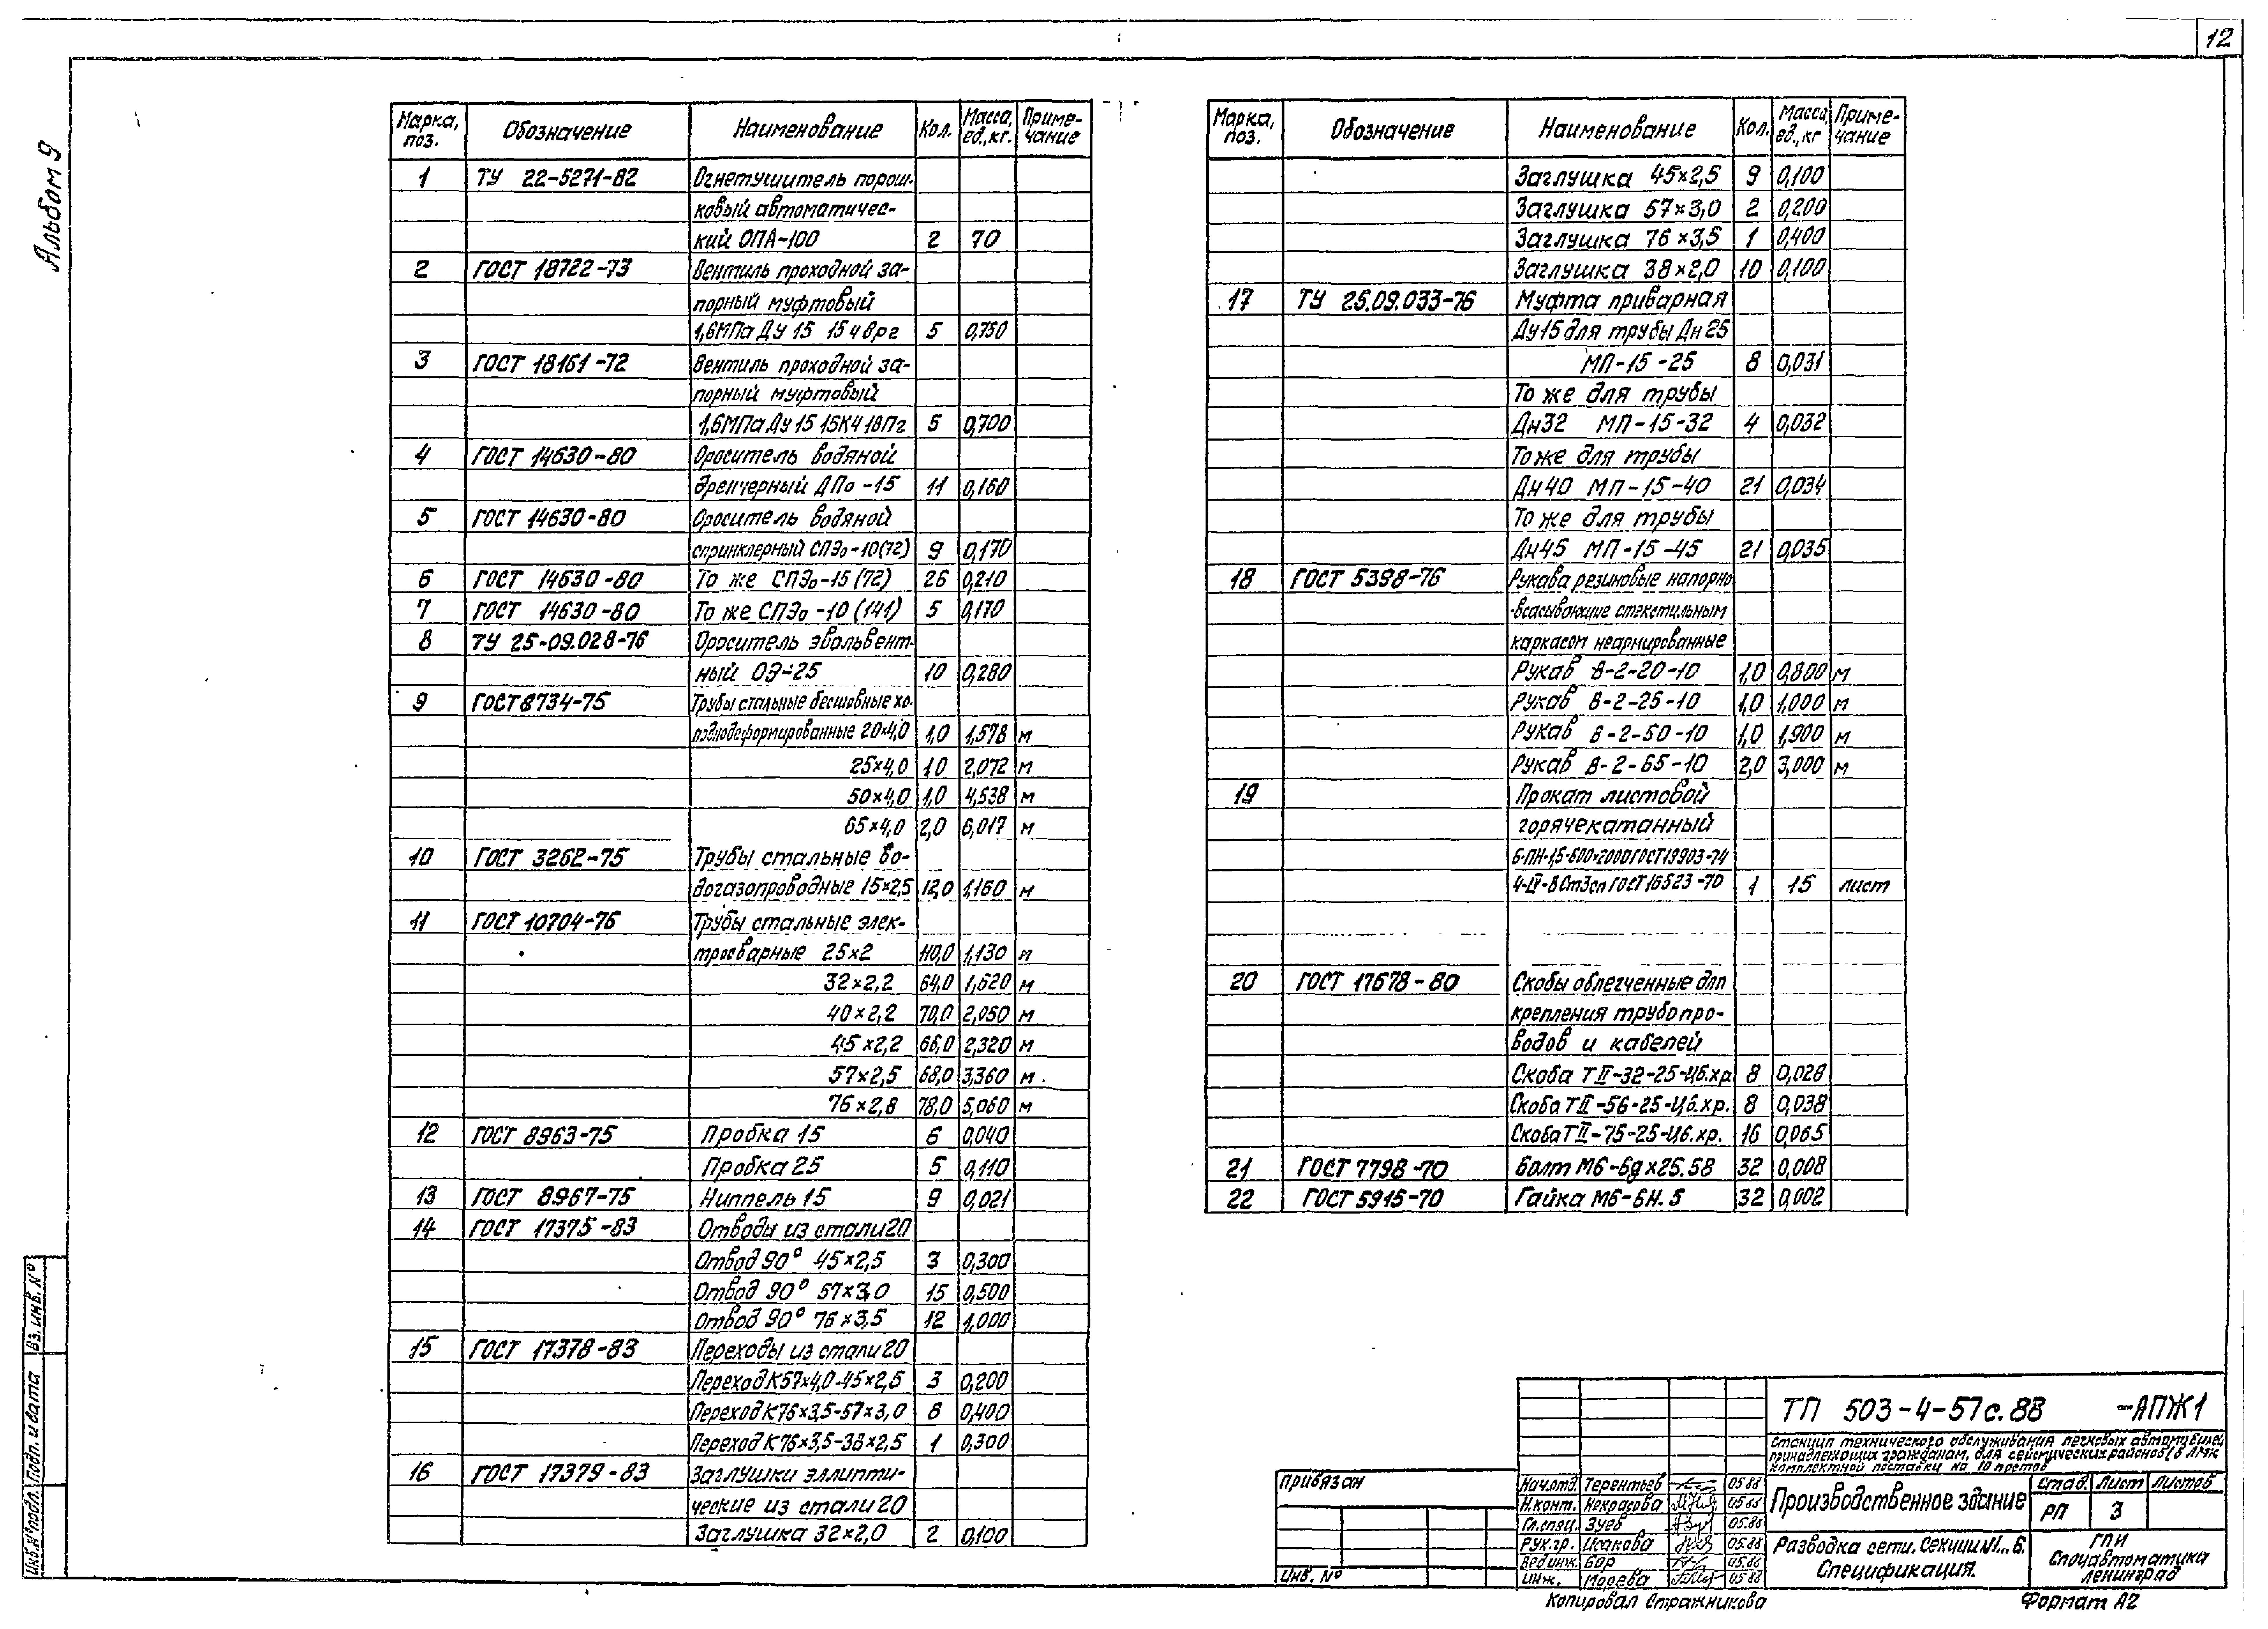 12
Альбом 9
Марка, поз. Обозначение Наименование Кол. Масса, ед., кг. Приме-чание
1 ТУ 22-5271-82 Огнетушитель порош-
ковый автоматичес-
кий ОПА-100 2 70
2 ГОСТ 18722-73 Вентиль проходной за-
порный муфтовый
1,6МПа Ду 15 15ч8рг 5 0,750
3 ГОСТ 18161-72 Вентиль проходной за-
порный муфтовый
1,6МПа Ду 15 15Кч18Пг 5 0,700
4 ГОСТ 14630-80 Ороситель водяной
дренчерный ДПо-15 11 0,160
5 ГОСТ 14630-80 Ороситель водяной
спринклерный СПЭо-10(72) 9 0,170
6 ГОСТ 14630-80 То же СПЭо-15(72) 26 0,210
7 ГОСТ 14630-80 То же СПЭо-10(141) 5 0,170
8 ТУ 25-09.028-76 Ороситель эвольвент-
ный ОЭ-25 10 0,280
9 ГОСТ 8734-75 Трубы стальные бесшовные хо-
лоднодеформированные 20×4,0 1,0 1,578 м
25×4,0 1,0 2,072 м
50×4,0 1,0 4,538 м
65×4,0 2,0 6,017 м
10 ГОСТ 3262-75 Трубы стальные во-
догазопроводные 15×2,5 12,0 1,160 м
11 ГОСТ 10704-76 Трубы стальные элек-
тросварные 25×2 110,0 1,130 м
32×2,2 64,0 1,620 м
40×2,2 70,0 2,050 м
45×2,2 66,0 2,320 м
57×2,5 68,0 3,360 м
76×2,8 78,0 5,060 м
12 ГОСТ 8963-75 Пробка 15 6 0,040
Пробка 25 5 0,110
13 ГОСТ 8967-75 Ниппель 15 9 0,021
14 ГОСТ 17375-83 Отводы из стали 20
Отвод 90° 45×2,5 3 0,300
Отвод 90° 57×3,0 15 0,500
Отвод 90° 76×3,5 12 1,000
15 ГОСТ 17378-83 Переходы из стали 20
Переход К57×4,0-45×2,5 3 0,200
Переход К76×3,5-57×3,0 6 0,400
Переход К76×3,5-38×2,5 1 0,300
16 ГОСТ 17379-83 Заглушки эллипти-
ческие из стали 20
Заглушка 32×2,0 2 0,100
Марка, поз. Обозначение Наименование Кол. Масса ед., кг Приме-чание
Заглушка 45×2,5 9 0,100
Заглушка 57×3,0 2 0,200
Заглушка 76×3,5 1 0,400
Заглушка 38×2,0 10 0,100
17 ТУ 25.09.033-76 Муфта приварная
Ду15 для трубы Дн 25
МП-15-25 8 0,031
То же для трубы
Дн32 МП-15-32 4 0,032
То же для трубы
Дн40 МП-15-40 21 0,034
То же для трубы
Дн45 МП-15-45 21 0,035
18 ГОСТ 5398-76 Рукава резиновые напорно-
-всасывающие с текстильным
каркасом неармированные
Рукав В-2-20-10 1,0 0,800 м
Рукав В-2-25-10 1,0 1,000 м
Рукав В-2-50-10 1,0 1,900 м
Рукав В-2-65-10 2,0 3,000 м
19 Прокат листовой
горячекатанный
Б-ПН-1,5-600×2000 ГОСТ 19903-74
4-IV-В Ст3сп ГОСТ 16523-70 1 15 лист
20 ГОСТ 17678-80 Скобы облегченные для
крепления трубопро-
водов и кабелей
Скоба ТII-32-25-Цб.хр 8 0,028
Скоба ТII-56-25-Цб.хр. 8 0,038
Скоба ТII-75-25-Цб.хр. 16 0,065
21 ГОСТ 7798-70 Болт М6-6g×25.58 32 0,008
22 ГОСТ 5915-70 Гайка М6-6Н.5 32 0,002
ТП 503-4-57с.88 -АПЖ1
Станция технического обслуживания легковых автомобилей,
принадлежащих гражданам, для сейсмических районов, в ЛМК
комплектной поставки на 10 постов
Привязан
Инв. №
Нач.отд. Терентьев 05.88
Н.конт. Некрасова 05.88
Гл.спец. Зуев 05.88
Рук.гр. Исакова 05.88
Вед.инж. Бор 05.88
Инж. Морева 05.88
Производственное здание
Стад. Лист Листов
РП 3
Разводка сети. Секции №1...6.
Спецификация.
ГПИ
Спецавтоматика
Ленинград
Копировал Стражникова
Формат А2
Вз. инв. №
Подп. и дата
Инв. № подл.